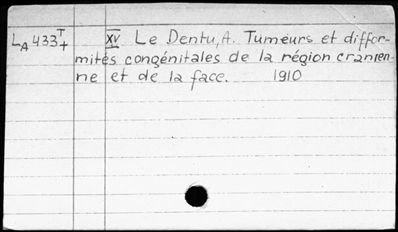 LA 433 T+ XV Le Dentu, A. Tumeurs et diffor-
mités congénitales de la région cranien-
ne et de la face. 1910